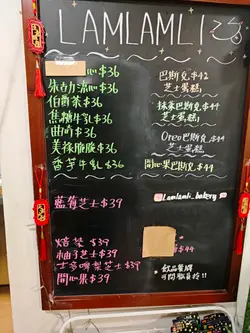 LAMLAMLI
流心$36
朱古力流心$36
伯爵茶$36
焦糖牛乳$36
曲奇$36
美祿脆脆$36
香芋牛乳$36
藍莓芝士$39
焙茶 $39
柚子芝士$39
士多啤梨芝士$39
開心果$39
巴斯克 $42
芝士蛋糕
抹茶巴斯克$44
芝士蛋糕
Oreo巴斯克$44
芝士蛋糕
開心果巴斯克$44
Lamlamli_bakery
$44
飲品餐牌
可問職員拎!!